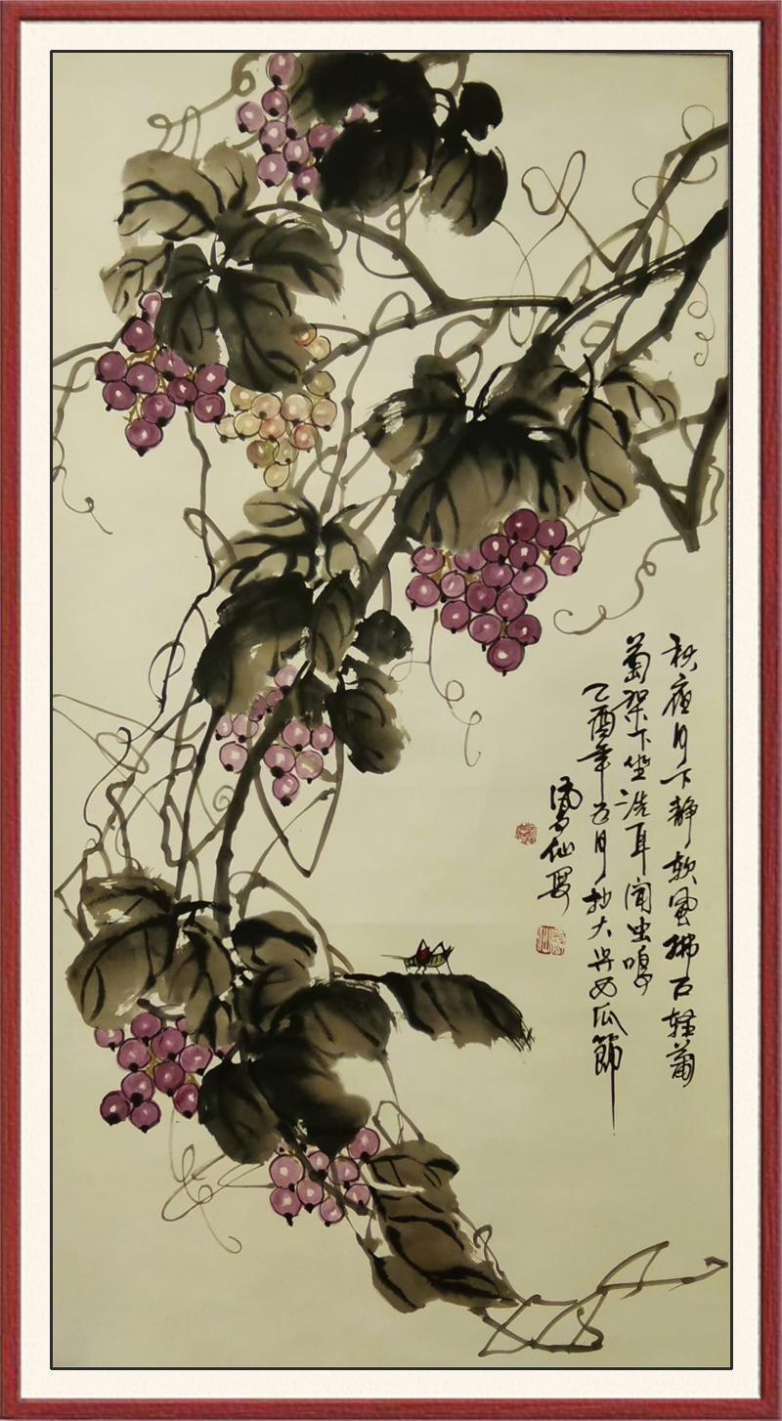 秋夜月下静软风拂面轻葡
萄架下坐洗耳闻虫鸣
乙酉年五月抄大兴西瓜節
凤仙写